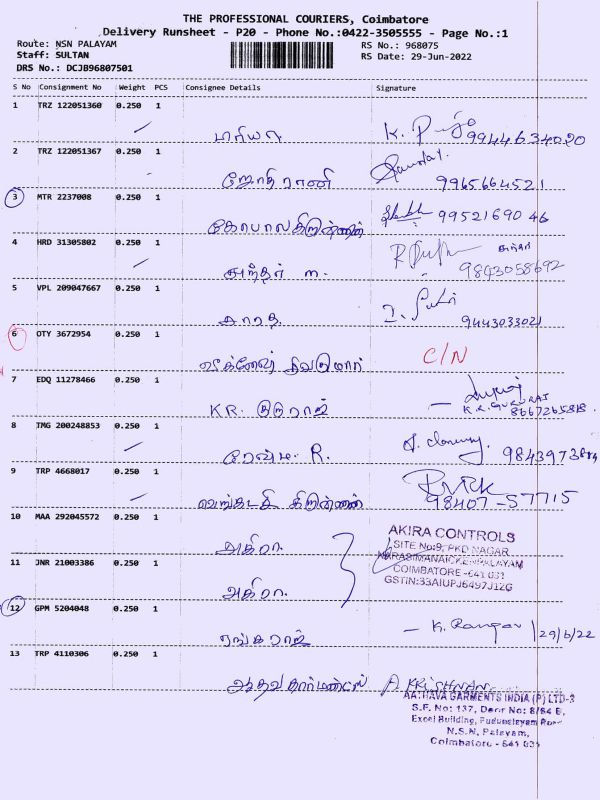 THE PROFESSIONAL COURIERS, Coimbatore
Delivery Runsheet - P20 - Phone No.:0422-3505555 - Page No.:1
Route: NSN PALAYAM
Staff: SULTAN
DRS No.: DCJB96807501
RS No.: 968075
RS Date: 29-Jun-2022
S No Consignment No Weight PCS Consignee Details Signature
1 TRZ 122051360 0.250 1
மரியா K. 9944634020
2 TRZ 122051367 0.250 1
ஜோதிராணி 9965664521
3 MTR 2237008 0.250 1
கோபாலகிருஷ்ணன் 9952169046
4 HRD 31305802 0.250 1
சுந்தர் m. 9843058692
5 VPL 209047667 0.250 1
9443033021
6 OTY 3672954 0.250 1
C/N
7 EDQ 11278466 0.250 1
KR. குருராஜ் K.R. GURURAJ
8667265818
8 TMG 200248853 0.250 1
R. 9843973
9 TRP 4668017 0.250 1
வெங்கட கிருஷ்ணன் 98407-57715
10 MAA 292045572 0.250 1
அகிரா
11 JNR 21003386 0.250 1
அகிரா
AKIRA CONTROLS
SITE No:9, PKD NAGAR
NARASIMANAICKENPALAYAM
COIMBATORE-641 031
GSTIN:33AIUPJ6497J1ZG
12 GPM 5204048 0.250 1
ரங்கராஜ் - K. Rangan 29/6/22
13 TRP 4110306 0.250 1
ஆதவகார்மண்ட்ஸ் A KRISHNAN
AATHAVA GARMENTS INDIA (P) LTD-3
S.F. No: 137, Door No: 8/64 E,
Excel Building, Pudupalayam Road
N.S.N. Palayam,
Coimbatore - 641 031